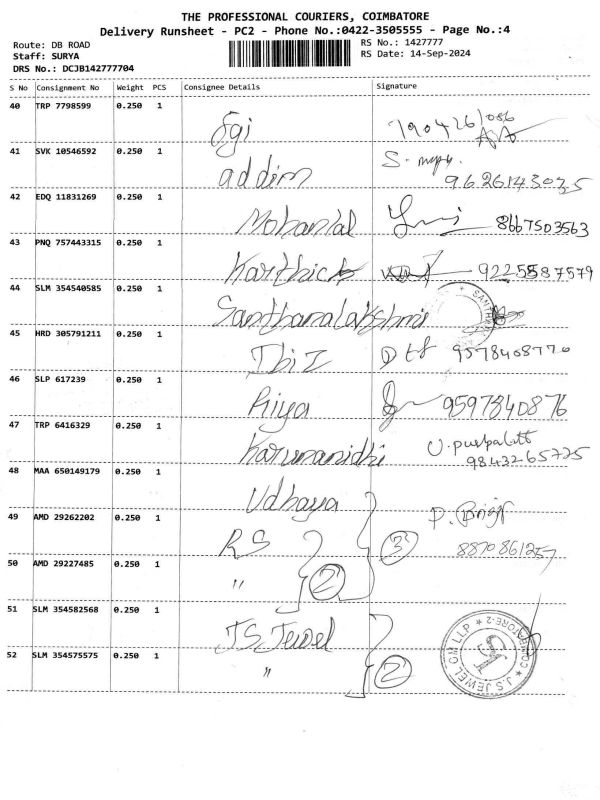 THE PROFESSIONAL COURIERS, COIMBATORE
Delivery Runsheet - PC2 - Phone No.:0422-3505555 - Page No.:4
Route: DB ROAD
Staff: SURYA
DRS No.: DCJB142777704
RS No.: 1427777
RS Date: 14-Sep-2024
S No Consignment No Weight PCS Consignee Details Signature
40 TRP 7798599 0.250 1
41 SVK 10546592 0.250 1 addim
9626143035
42 EDQ 11831269 0.250 1 Mohanlal 8667503563
43 PNQ 757443315 0.250 1 Karthick 9225587579
44 SLM 354540585 0.250 1 Santhanalakshmi
45 HRD 305791211 0.250 1 9578408770
46 SLP 617239 0.250 1 Riya 9597840876
47 TRP 6416329 0.250 1 Karunanidhi
9843265725
48 MAA 650149179 0.250 1 Udhaya
49 AMD 29262202 0.250 1 RS 3 8870861257
50 AMD 29227485 0.250 1 " 2
51 SLM 354582568 0.250 1 J.S Jewel
52 SLM 354575575 0.250 1 " 2
J.S JEWEL OM LLP * COIMBATORE-2 *
JS